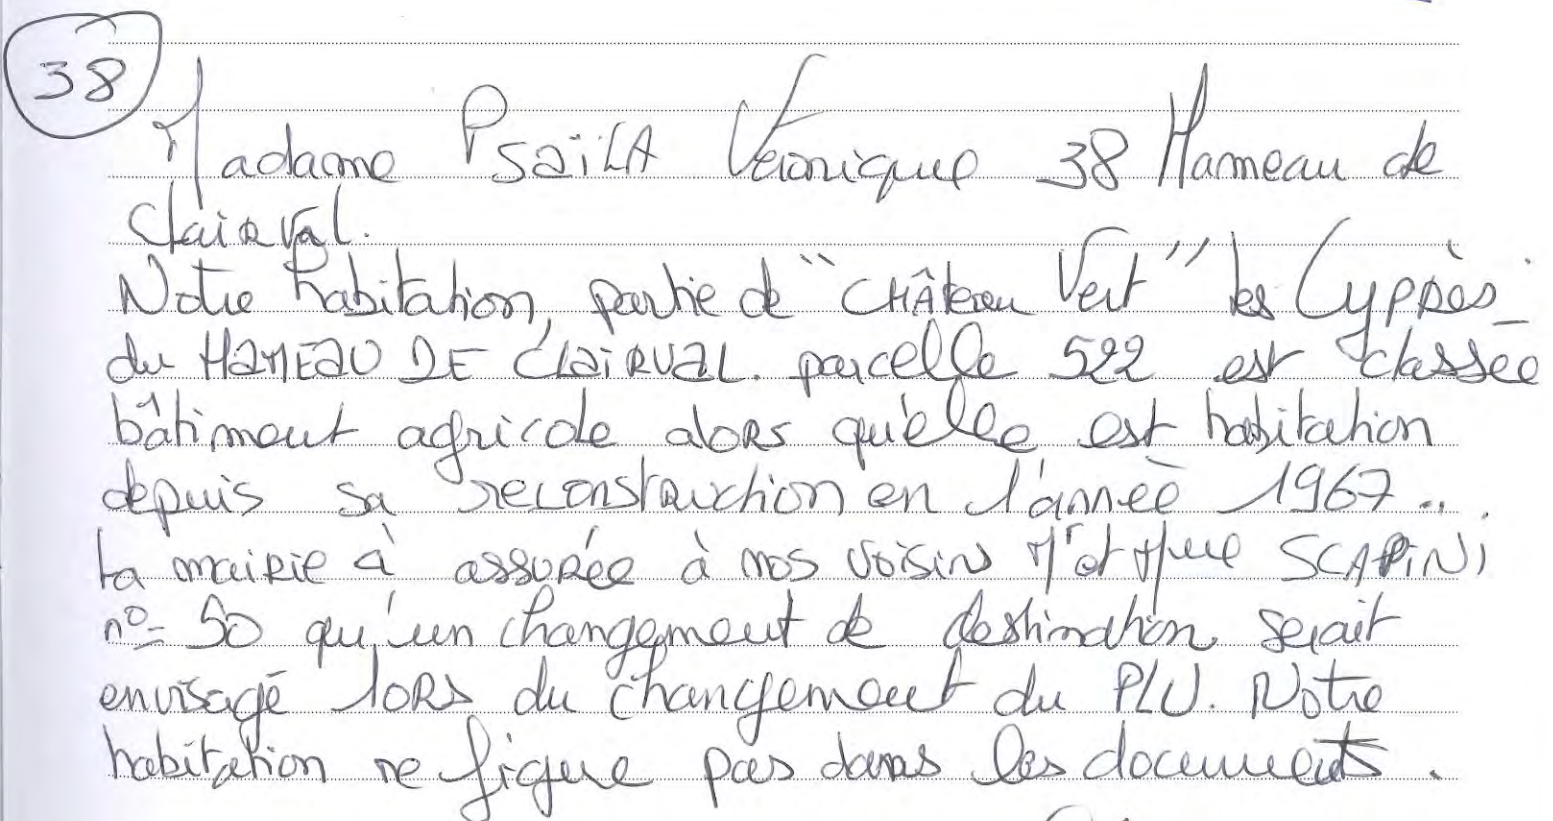 38
Madame PSaïLA Véronique 38 Hameau de
Clairval.
Notre habitation, partie de "CHÂteau Vert" les Cyprès
du HAMEAU DE CLAIRVAL. parcelle 522 est classée
bâtiment agricole alors qu'elle est habitation
depuis sa reconstruction en l'année 1967...
La mairie à assurée à nos voisins Mr et Mme SCAPINI
n°= 50 qu'un changement de destination. serait
envisagé lors du changement du PLU. Notre
habitation ne figure pas dans les documents.